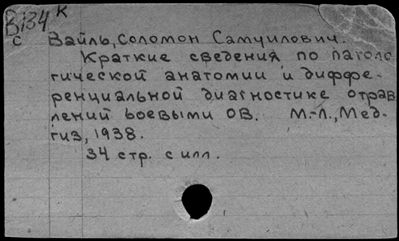 В134 К
С
Вайль, Соломон Самуилович.
Краткие сведения по патоло
гической анатомии и диффе-
ренциальной диагностике отрав
лений боевыми ОВ. М.-Л., Мед-
гиз, 1938.
34 стр. с илл.